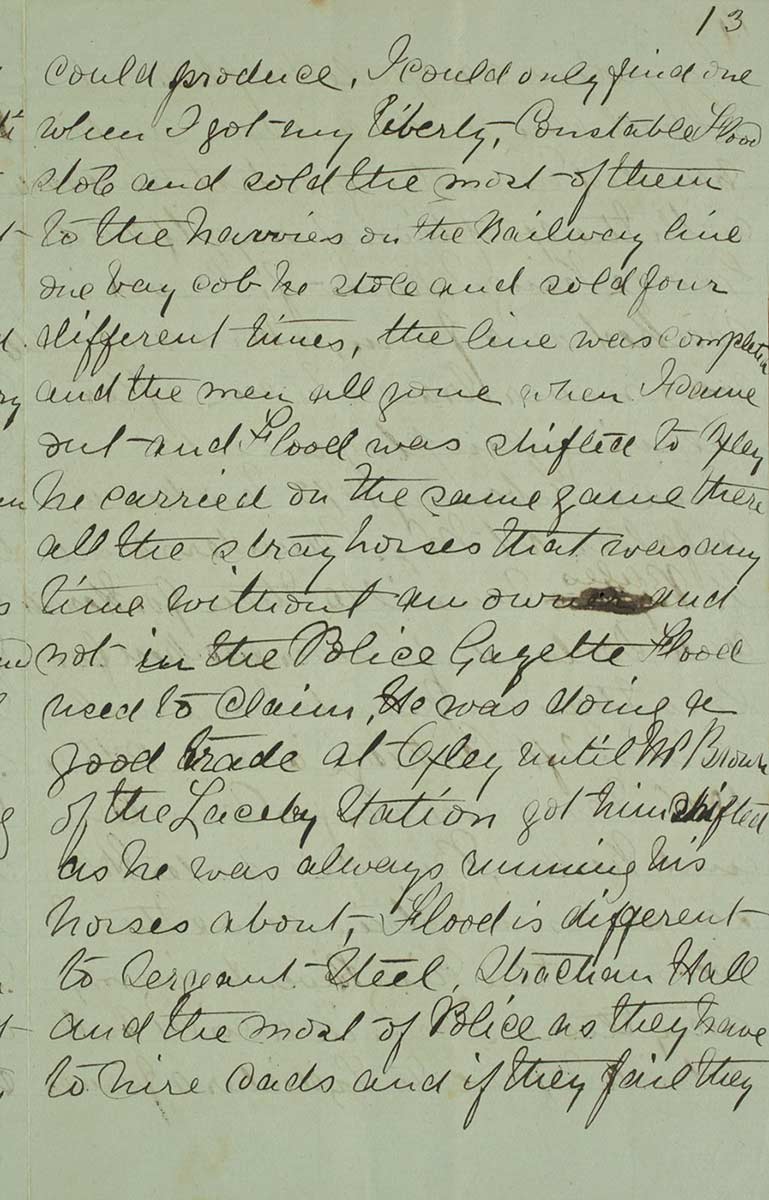 13
could produce, I could only find one
when I got my liberty, Constable Flood
stole and sold the most of them
to the navvies on the Railway line
one bay cob he stole and sold four
different times, the line was completed
and the men all gone when I came
out and Flood was shifted to Oxley
he carried on the same game there
all the stray horses that was any
time without an owner and
not in the Police Gazette Flood
used to claim, He was doing a
good trade at Oxley until Mr Brown
of the Laceby Station got him shifted
as he was always running his
horses about, Flood is different
to Sergeant Steel, Strachan Hall
and the most of Police as they have
to hire cads and if they fail they